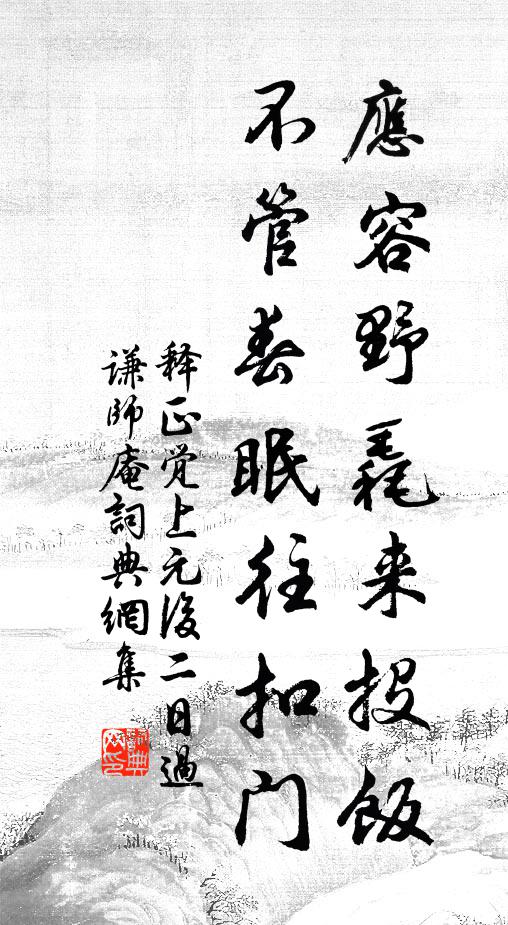 應容野毳来投飯
不管春眠往扣门
释正觉上元後二日過
謙師庵詞典網集